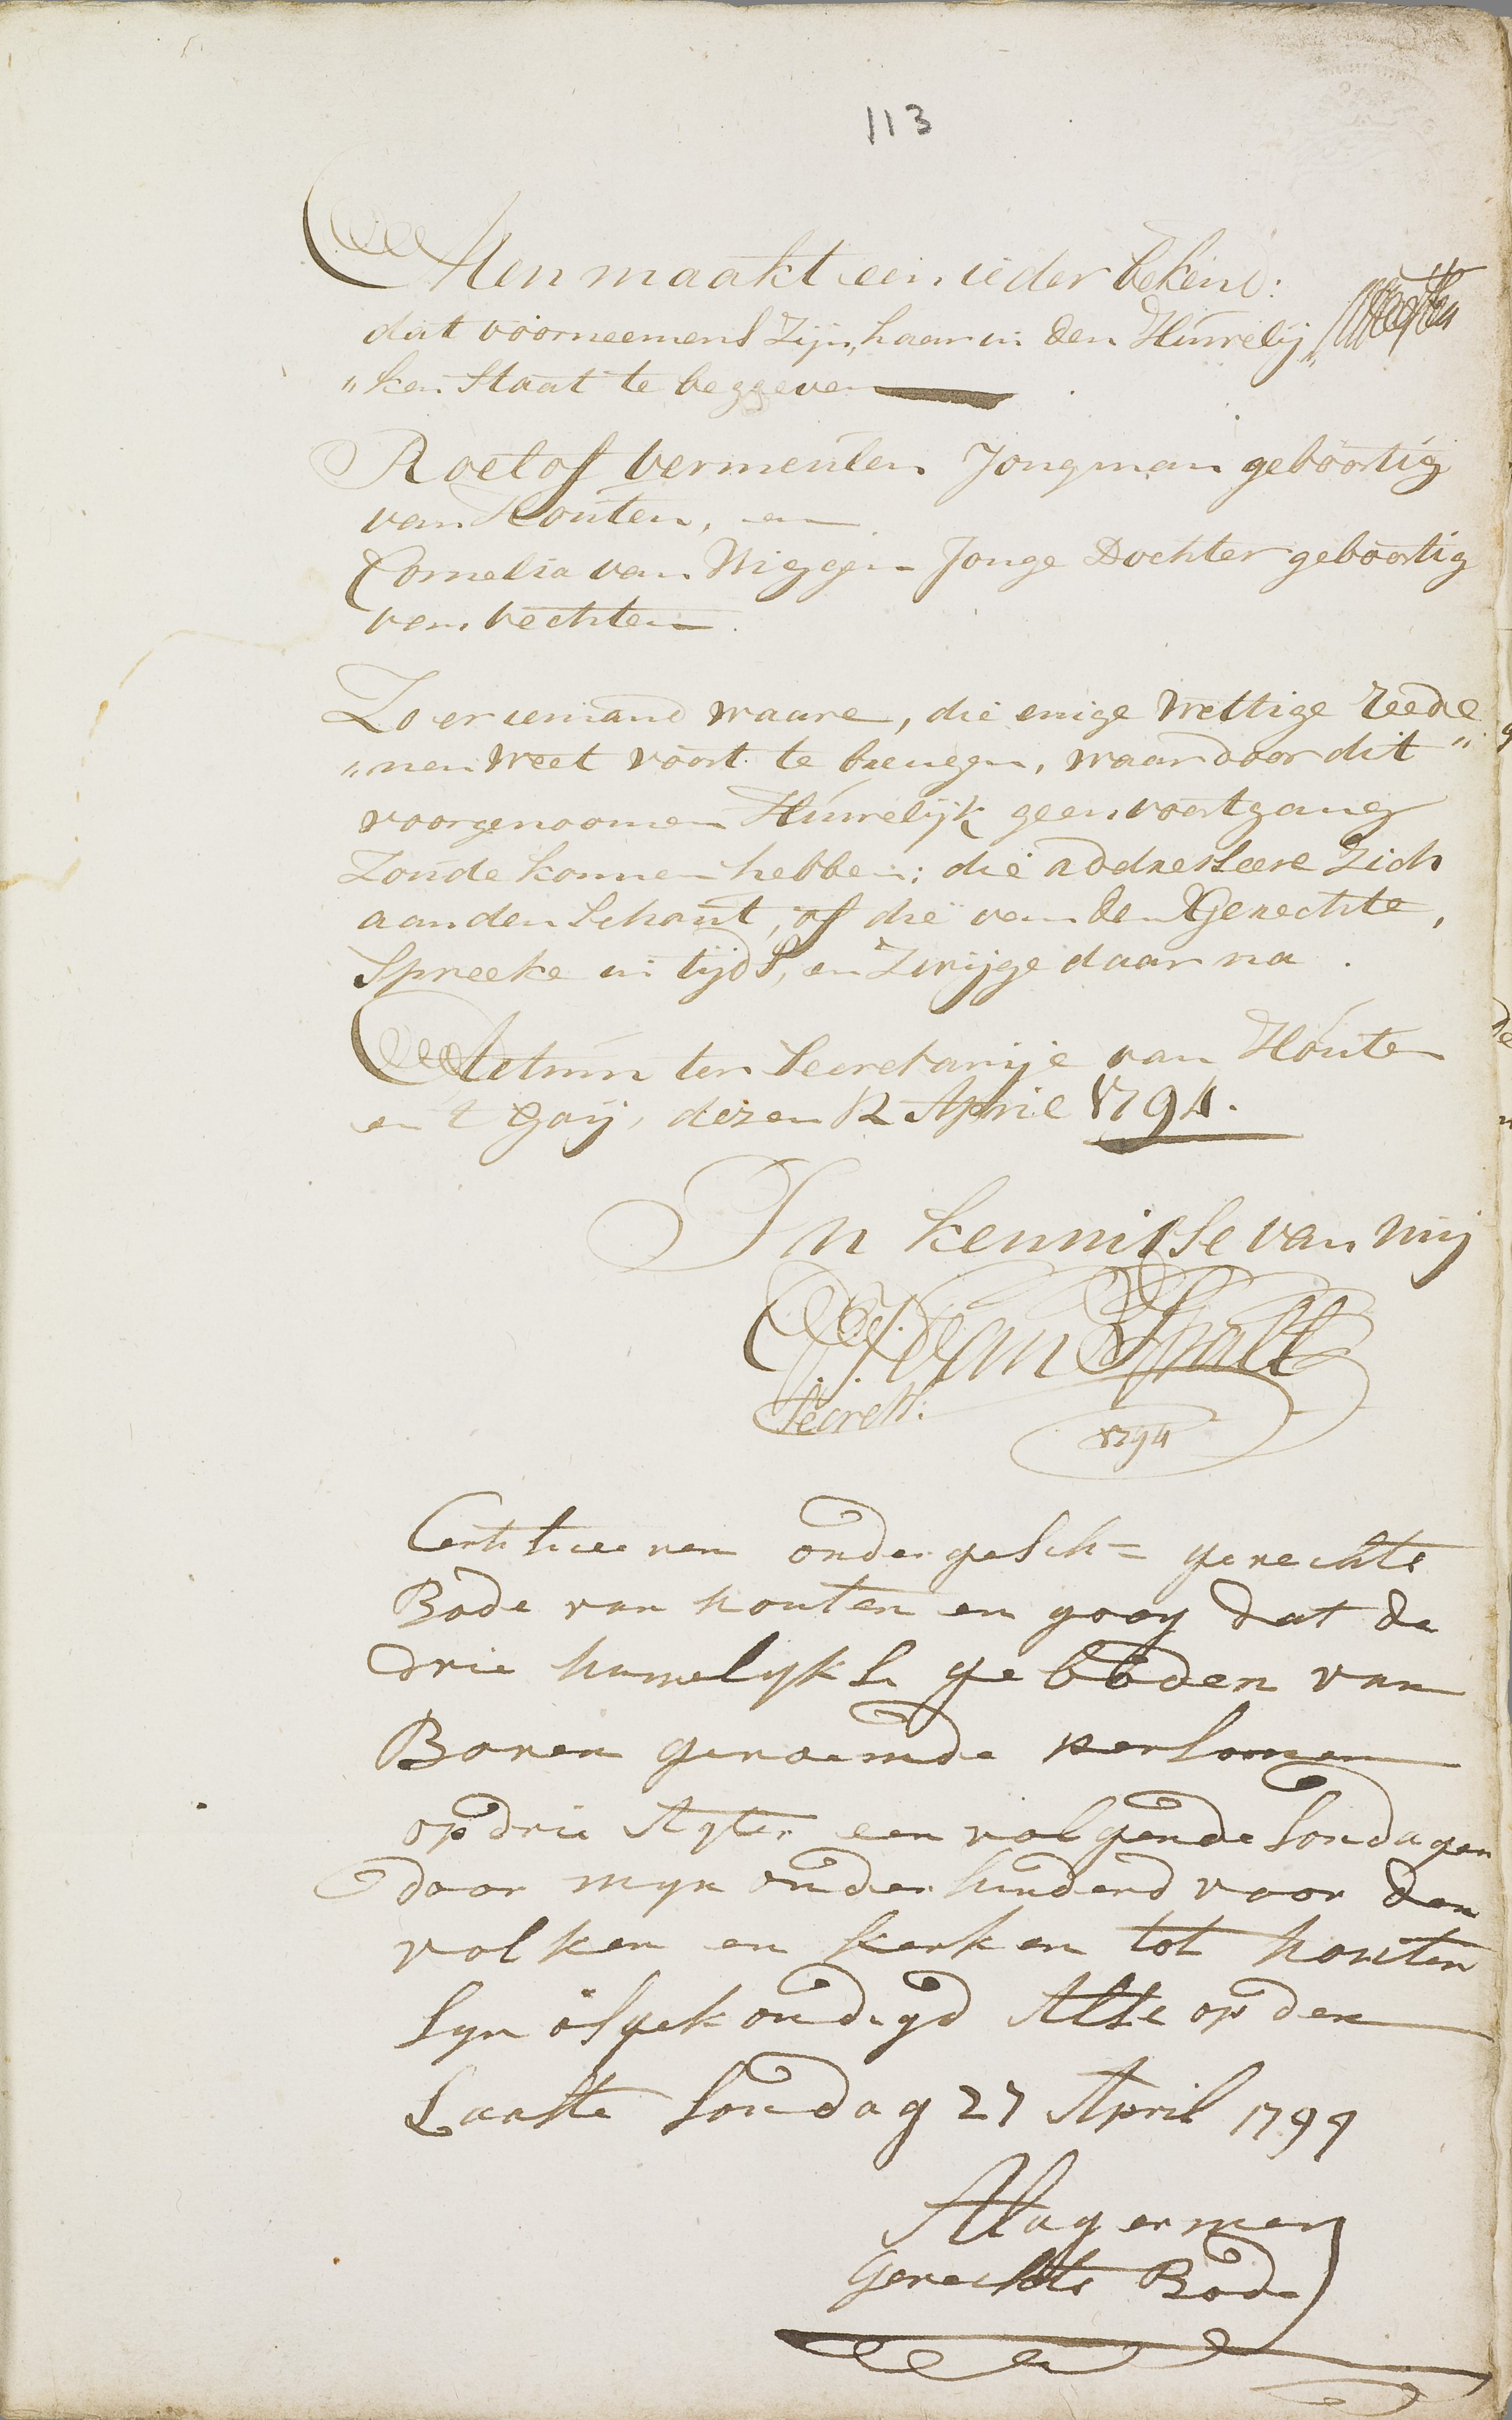 113
Men maakt een ieder bekend:
dat voorneemens Zijn, haar in den Huwelij„
„ken Staat te beggeven
Roelof Vermeulen Jongman geboortig
van Houten, en
Cornelia van Wiggen Jonge Dochter geboortig
van Vechten.
Zo er iemand waare, die enige Wettige reede„
„nen weet voort te brengen, waardoor dit
voorgenoomen Huwelijk geen voortgang
Zoude konnen hebben; die addresseere Zich
aan den Schout, of die van den Gerechte,
Spreeke in tijds, en Zwijge daar na.
Actum ter Secretarije van Houten
en 't Goij, dezen 12 April 1794.
In kennisse van mij
van Spall
Secrets:
1794
Certificeeren ondergesch= gerechts
Bode van houten en gooy dat de
drie huwelykse gebboden van
Boven genoemde persoonen
op drie Agter een volgende sondagen
door myn onderhinderd voor den
volken en kerken tot houten
syn afgekondigd Alse op den
Laatste sondag 27 April 1794
A Lagerman
Gerechts Bode